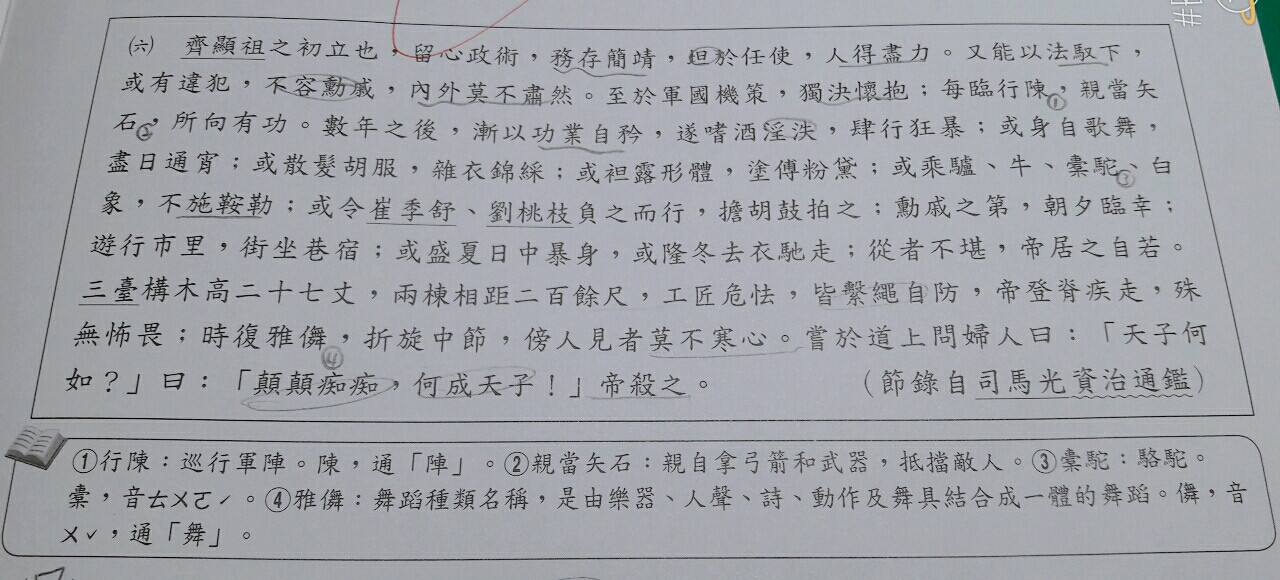 ㈥ 齊顯祖之初立也，留心政術，務存簡靖，坦於任使，人得盡力。又能以法馭下，
或有違犯，不容勳戚，內外莫不肅然。至於軍國機策，獨決懷抱；每臨行陳①，親當矢
石②，所向有功。數年之後，漸以功業自矜，遂嗜酒淫泆，肆行狂暴；或身自歌舞，
盡日通宵；或散髮胡服，雜衣錦綵；或袒露形體，塗傅粉黛；或乘驢、牛、橐駝③、白
象，不施鞍勒；或令崔季舒、劉桃枝負之而行，擔胡鼓拍之；勳戚之第，朝夕臨幸；
遊行市里，街坐巷宿；或盛夏日中暴身，或隆冬去衣馳走；從者不堪，帝居之自若。
三臺構木高二十七丈，兩棟相距二百餘尺，工匠危怯，皆繫繩自防，帝登脊疾走，殊
無怖畏；時復雅儛④，折旋中節，傍人見者莫不寒心。嘗於道上問婦人曰：「天子何
如？」曰：「顛顛痴痴，何成天子！」帝殺之。（節錄自司馬光資治通鑑）
①行陳：巡行軍陣。陳，通「陣」。②親當矢石：親自拿弓箭和武器，抵擋敵人。③橐駝：駱駝。
橐，音ㄊㄨㄛˊ。④雅儛：舞蹈種類名稱，是由樂器、人聲、詩、動作及舞具結合成一體的舞蹈。儛，音
ㄨˇ，通「舞」。